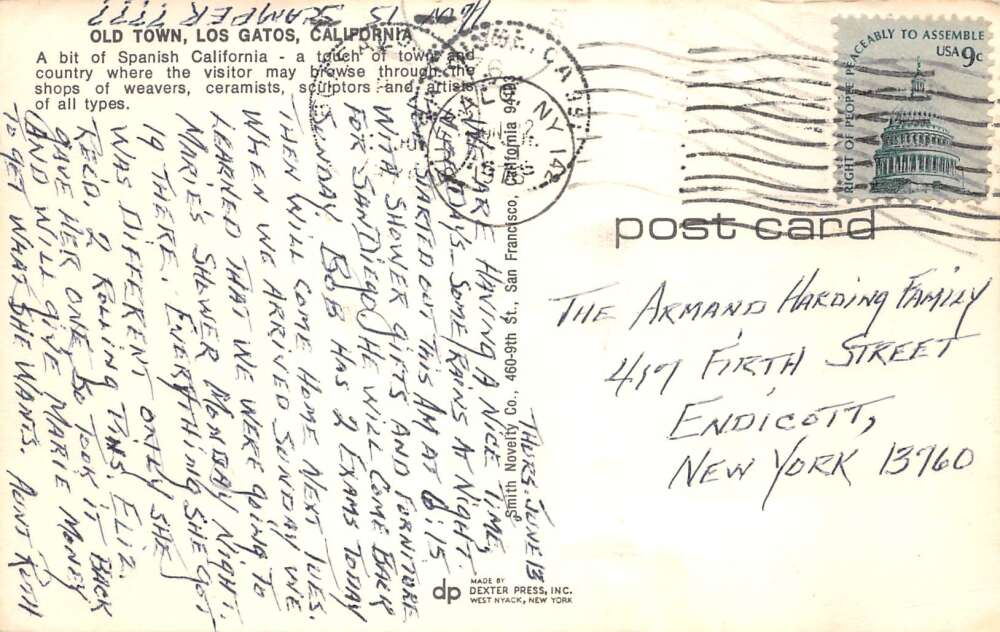 OLD TOWN, LOS GATOS, CALIFORNIA
A bit of Spanish California - a touch of town and
country where the visitor may browse through the
shops of weavers, ceramists, sculptors and artists
of all types.
RIGHT OF PEOPLE PEACEABLY TO ASSEMBLE
USA 9c
CA
NY 142
post card
THE ARMAND HARDING FAMILY
FIRTH STREET
ENDICOTT,
NEW YORK 13760
Smith Novelty Co., 460-9th St., San Francisco, California 94103
dp MADE BY
DEXTER PRESS, INC.
WEST NYACK, NEW YORK
THURS. JUNE
WE ARE HAVING A NICE TIME,
DAYS - SOME RAINS A NIGHT.
STARTED OUT THIS AM AT 6:15
WITH SHOWER GIFTS AND FURNITURE
FOR SAN DIEGO. HE WILL COME BACK
SUNDAY. BOB HAS 2 EXAMS TODAY
THEN WILL COME HOME NEXT TUES.
WHEN WE ARRIVED SUNDAY WE
LEARNED THAT WE WERE GOING TO
MARIE'S SHOWER MONDAY NIGHT.
19 THERE. EVERYTHING SHE GOT
WAS DIFFERENT ONLY SHE
REC'D. 2 ROLLING PINS. ELIZ.
GAVE HER ONE SO TOOK IT BACK
(AND WILL GIVE MARIE MONEY
TO GET WHAT SHE WANTS. AUNT RUTH
IS
SCAMPER????